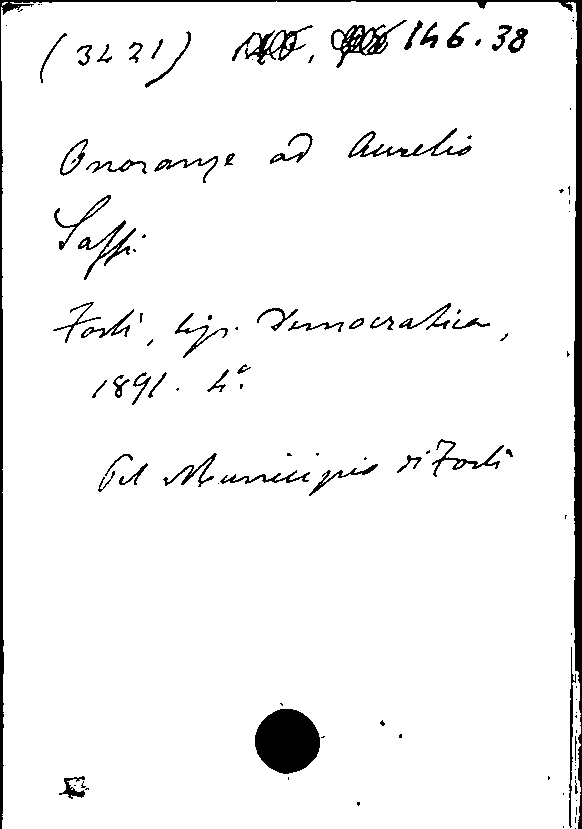 (3421) 146.38
Onoranze ad Aurelio
Saffi.
Forlì, tip. Democratica,
1891. 4°.
Del Municipio di Forlì